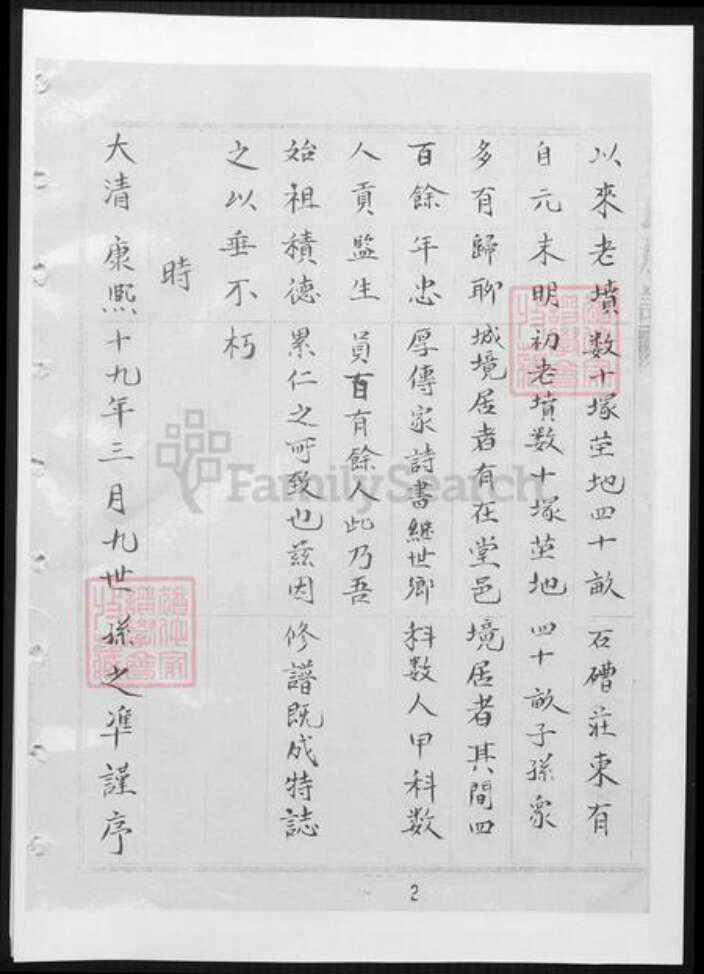 以來老墳數十塚塋地四十畝石磂莊東有
自元末明初老墳數十塚塋地四十畝子孫衆
多有歸聊城境居者有在堂邑境居者其間四
百餘年忠厚傳家詩書継世鄉科數人甲科數
人貢監生員百有餘人此乃吾
始祖積德累仁之所致也茲因修譜既成特誌
之以垂不朽
時
大清康熙十九年三月九世孫之準謹序
2
FamilySearch